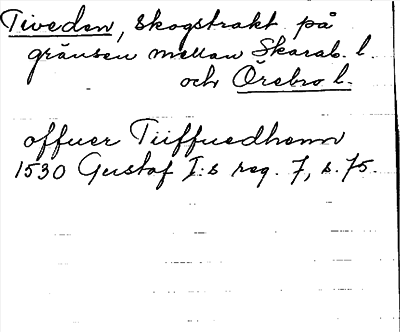 Tiveden, skogstrakt på
gränsen mellan Skarab. l.
och Örebro l.
offuer Tiiffuedhenn
1530 Gustaf I:s reg. 7, s. 75.